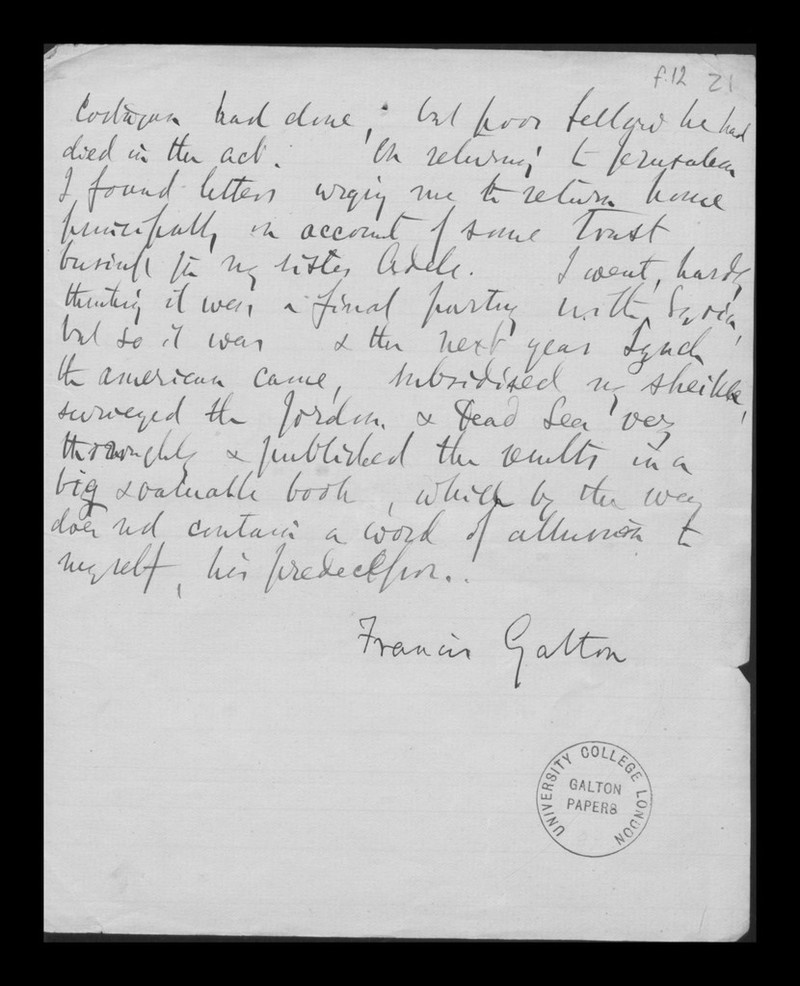 f.12 21
Costigan had done, but poor fellow he had
died in the act. On returning to Jerusalem
I found letters urging me to return home
principally on account of some Trust
business for my sister Adele. I went, hardly
thinking it was a final parting with Syria,
but so it was & the next year Lynch
the american came, subsidised my sheikh,
surveyed the Jordan & Dead Sea very
thoroughly & published the results in a
big & valuable book, which by the way
does not contain a word of allusion to
myself, his predecessor..
Francis Galton
UNIVERSITY COLLEGE LONDON
GALTON
PAPERS